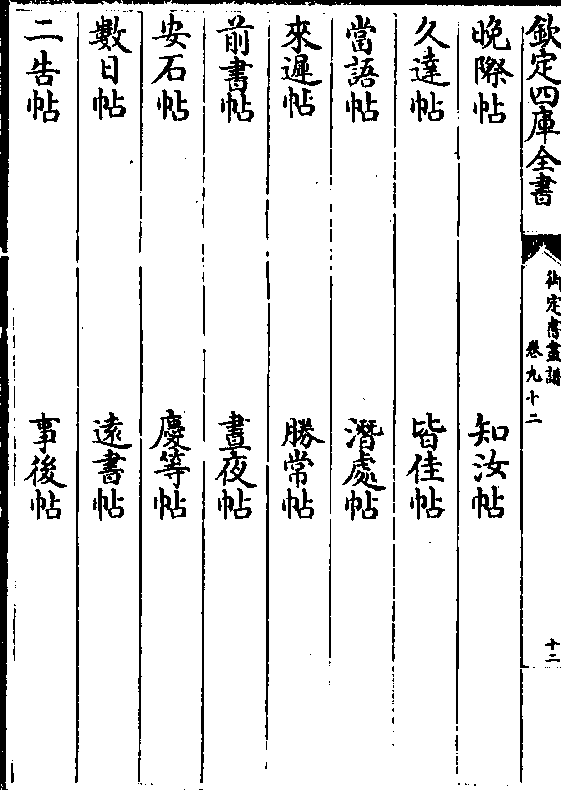 欽定四庫全書
御定書畫譜
卷九十二
十二
晚際帖　知汝帖
久達帖　皆佳帖
當語帖　潛處帖
來遲帖　勝常帖
前書帖　晝夜帖
安石帖　慶等帖
數日帖　遠書帖
二告帖　事後帖